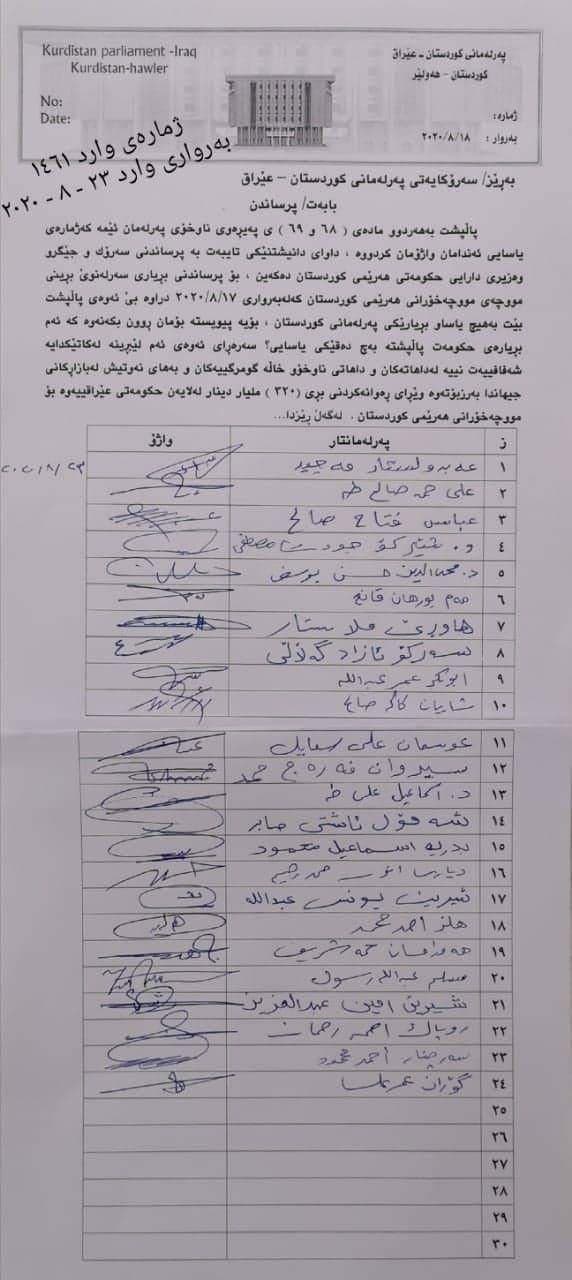 Kurdistan parliament -Iraq
Kurdistan-hawler
No:
Date:
پەرلەمانی كوردستان - عێراق
كوردستان - هەولێر
ژمارە:
بەروار : ٢٠٢٠/٨/١٨
ژمارەی وارد ١٤٦١
بەرواری وارد ٢٣ - ٨ - ٢٠٢٠
بەڕێز/ سەرۆكایەتی پەرلەمانی كوردستان – عێراق
بابەت/ پرساندن
پاڵپشت بەهەردوو مادەی ( ٦٨ و ٦٩ ) ی پەیڕەوی ناوخۆی پەرلەمان ئێمە كەژمارەی
یاسایی ئەندامان واژۆمان كردووە ، داوای دانیشتنێكی تایبەت بە پرساندنی سەرۆك و جێگرو
وەزیری دارایی حكومەتی هەرێمی كوردستان دەكەین ، بۆ پرساندنی بڕیاری سەرلەنوێ بڕینی
مووچەی مووچەخۆرانی هەرێمی كوردستان كەلەبەرواری ٢٠٢٠/٨/١٧ دراوە بێ ئەوەی پاڵپشت
بێت بەهیچ یاساو بڕیارێكی پەرلەمانی كوردستان ، بۆیە پیویستە بۆمان ڕوون بكەنەوە كە ئەم
بڕیارەی حكومەت پاڵپشتە بەچ دەقێكی یاسایی؟ سەرەڕای ئەوەی ئەم لێبڕینە لەكاتێكدایە
شەفافییەت نییە لەداهاتەكان و داهاتی ناوخۆو خاڵە گومرگییەكان و بەهای نەوتیش لەبازاڕەكانی
جیهاندا بەرزبۆتەوە وێڕای ڕەوانەكردنی بڕی (٣٢٠) ملیار دینار لەلایەن حكومەتی عێراقییەوە بۆ
مووچەخۆرانی هەرێمی كوردستان . لەگەڵ ڕێزدا...
ز پەرلەمانتار واژۆ
١ عەبدولستار مەجید ٢٠٢٠/٨/٢٣
٢ علی حمە صالح طە
٣ عباس فتاح صالح
٤ شێركۆ جودت مصطفی
٥ د. محی الدین حسن یوسف
٦ مەم بورهان قانع
٧ هاوڕێ مەلا ستار
٨ سەركۆ ئازاد گەڵاڵی
٩ ابوبكر عمر عبدالله
١٠ شایان كاكە صالح
١١ عوسمان علی
١٢ سیروان فەرەج حمد
١٣ د. اسماعیل علی طە
١٤ ئاشتی صابر
١٥ بدریە اسماعیل محمود
١٦
١٧ شیرین یونس عبدالله
١٨ هلز احمد محمد
١٩ حمە شریف
٢٠ مسلم عبدالله رسول
٢١ شیرین امین عبدالعزیز
٢٢ روپاك احمد رحمان
٢٣ سەرچنار أحمد محمود
٢٤ گۆران عمر
٢٥
٢٦
٢٧
٢٨
٢٩
٣٠